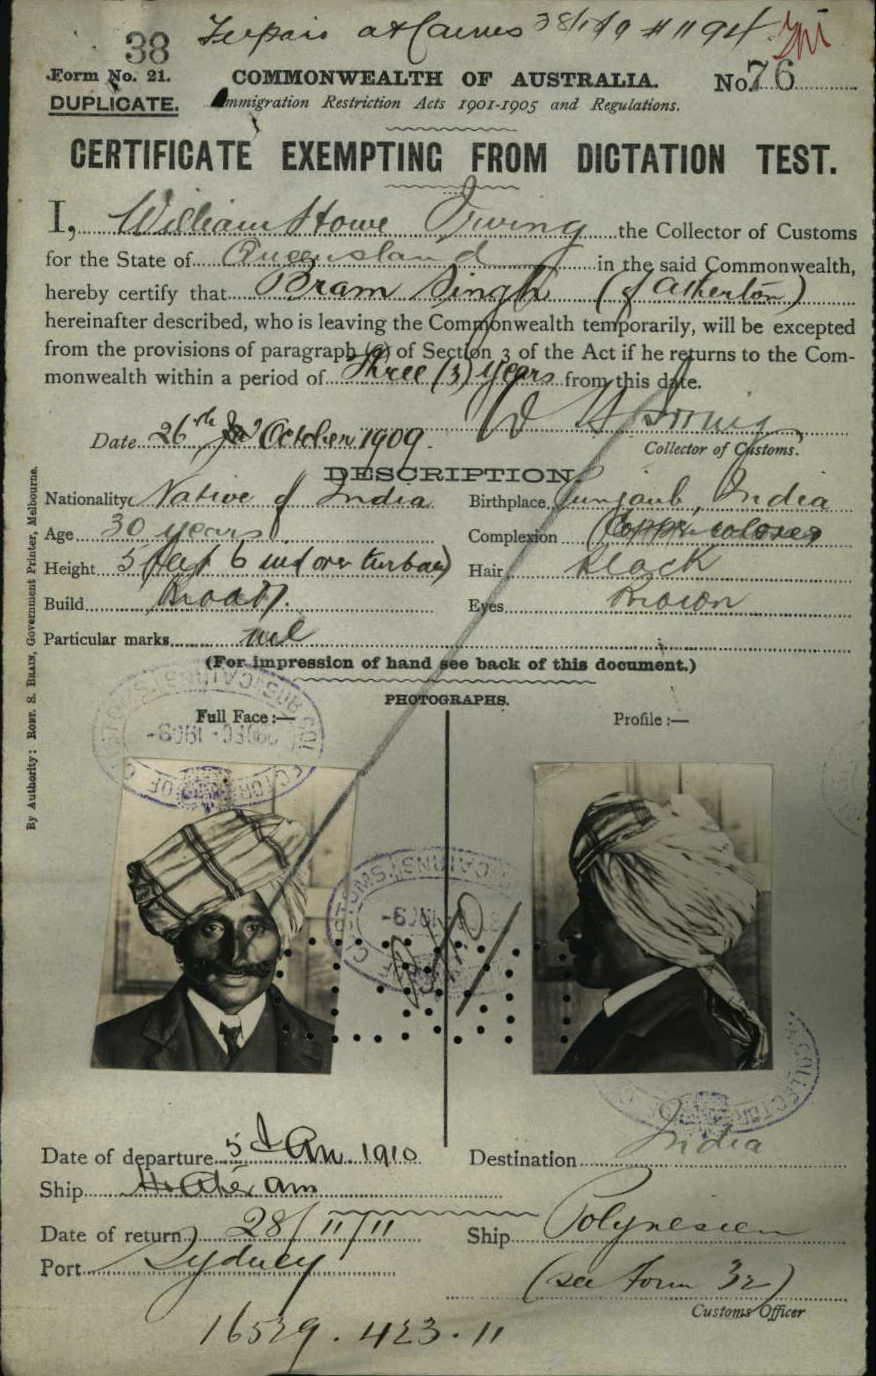 38
at Cairns
Form No. 21.
COMMONWEALTH OF AUSTRALIA.
No. 76
DUPLICATE.
Immigration Restriction Acts 1901-1905 and Regulations.
CERTIFICATE EXEMPTING FROM DICTATION TEST.
I, William Howe Irving the Collector of Customs
for the State of Queensland in the said Commonwealth,
hereby certify that Bram Singh (of Atherton)
hereinafter described, who is leaving the Commonwealth temporarily, will be excepted
from the provisions of paragraph (a) of Section 3 of the Act if he returns to the Com-
monwealth within a period of three (3) years from this date.
W H Irving
Date 26th October 1909.
Collector of Customs.
DESCRIPTION.
Nationality Native of India
Birthplace Punjaub, India
Age 30 years
Complexion Copper colored
Height 5 feet 6 ins over turban
Hair Black
Build Broad
Eyes Brown
Particular marks nil
(For impression of hand see back of this document.)
PHOTOGRAPHS.
Full Face:—
Profile:—
Date of departure 5 Jan. 1910
Destination India
Ship
Date of return 28/11/11
Ship Polynesien
Port Sydney
(see form 32)
Customs Officer
16529.423.11
By Authority: ROBT. S. BRAIN, Government Printer, Melbourne.